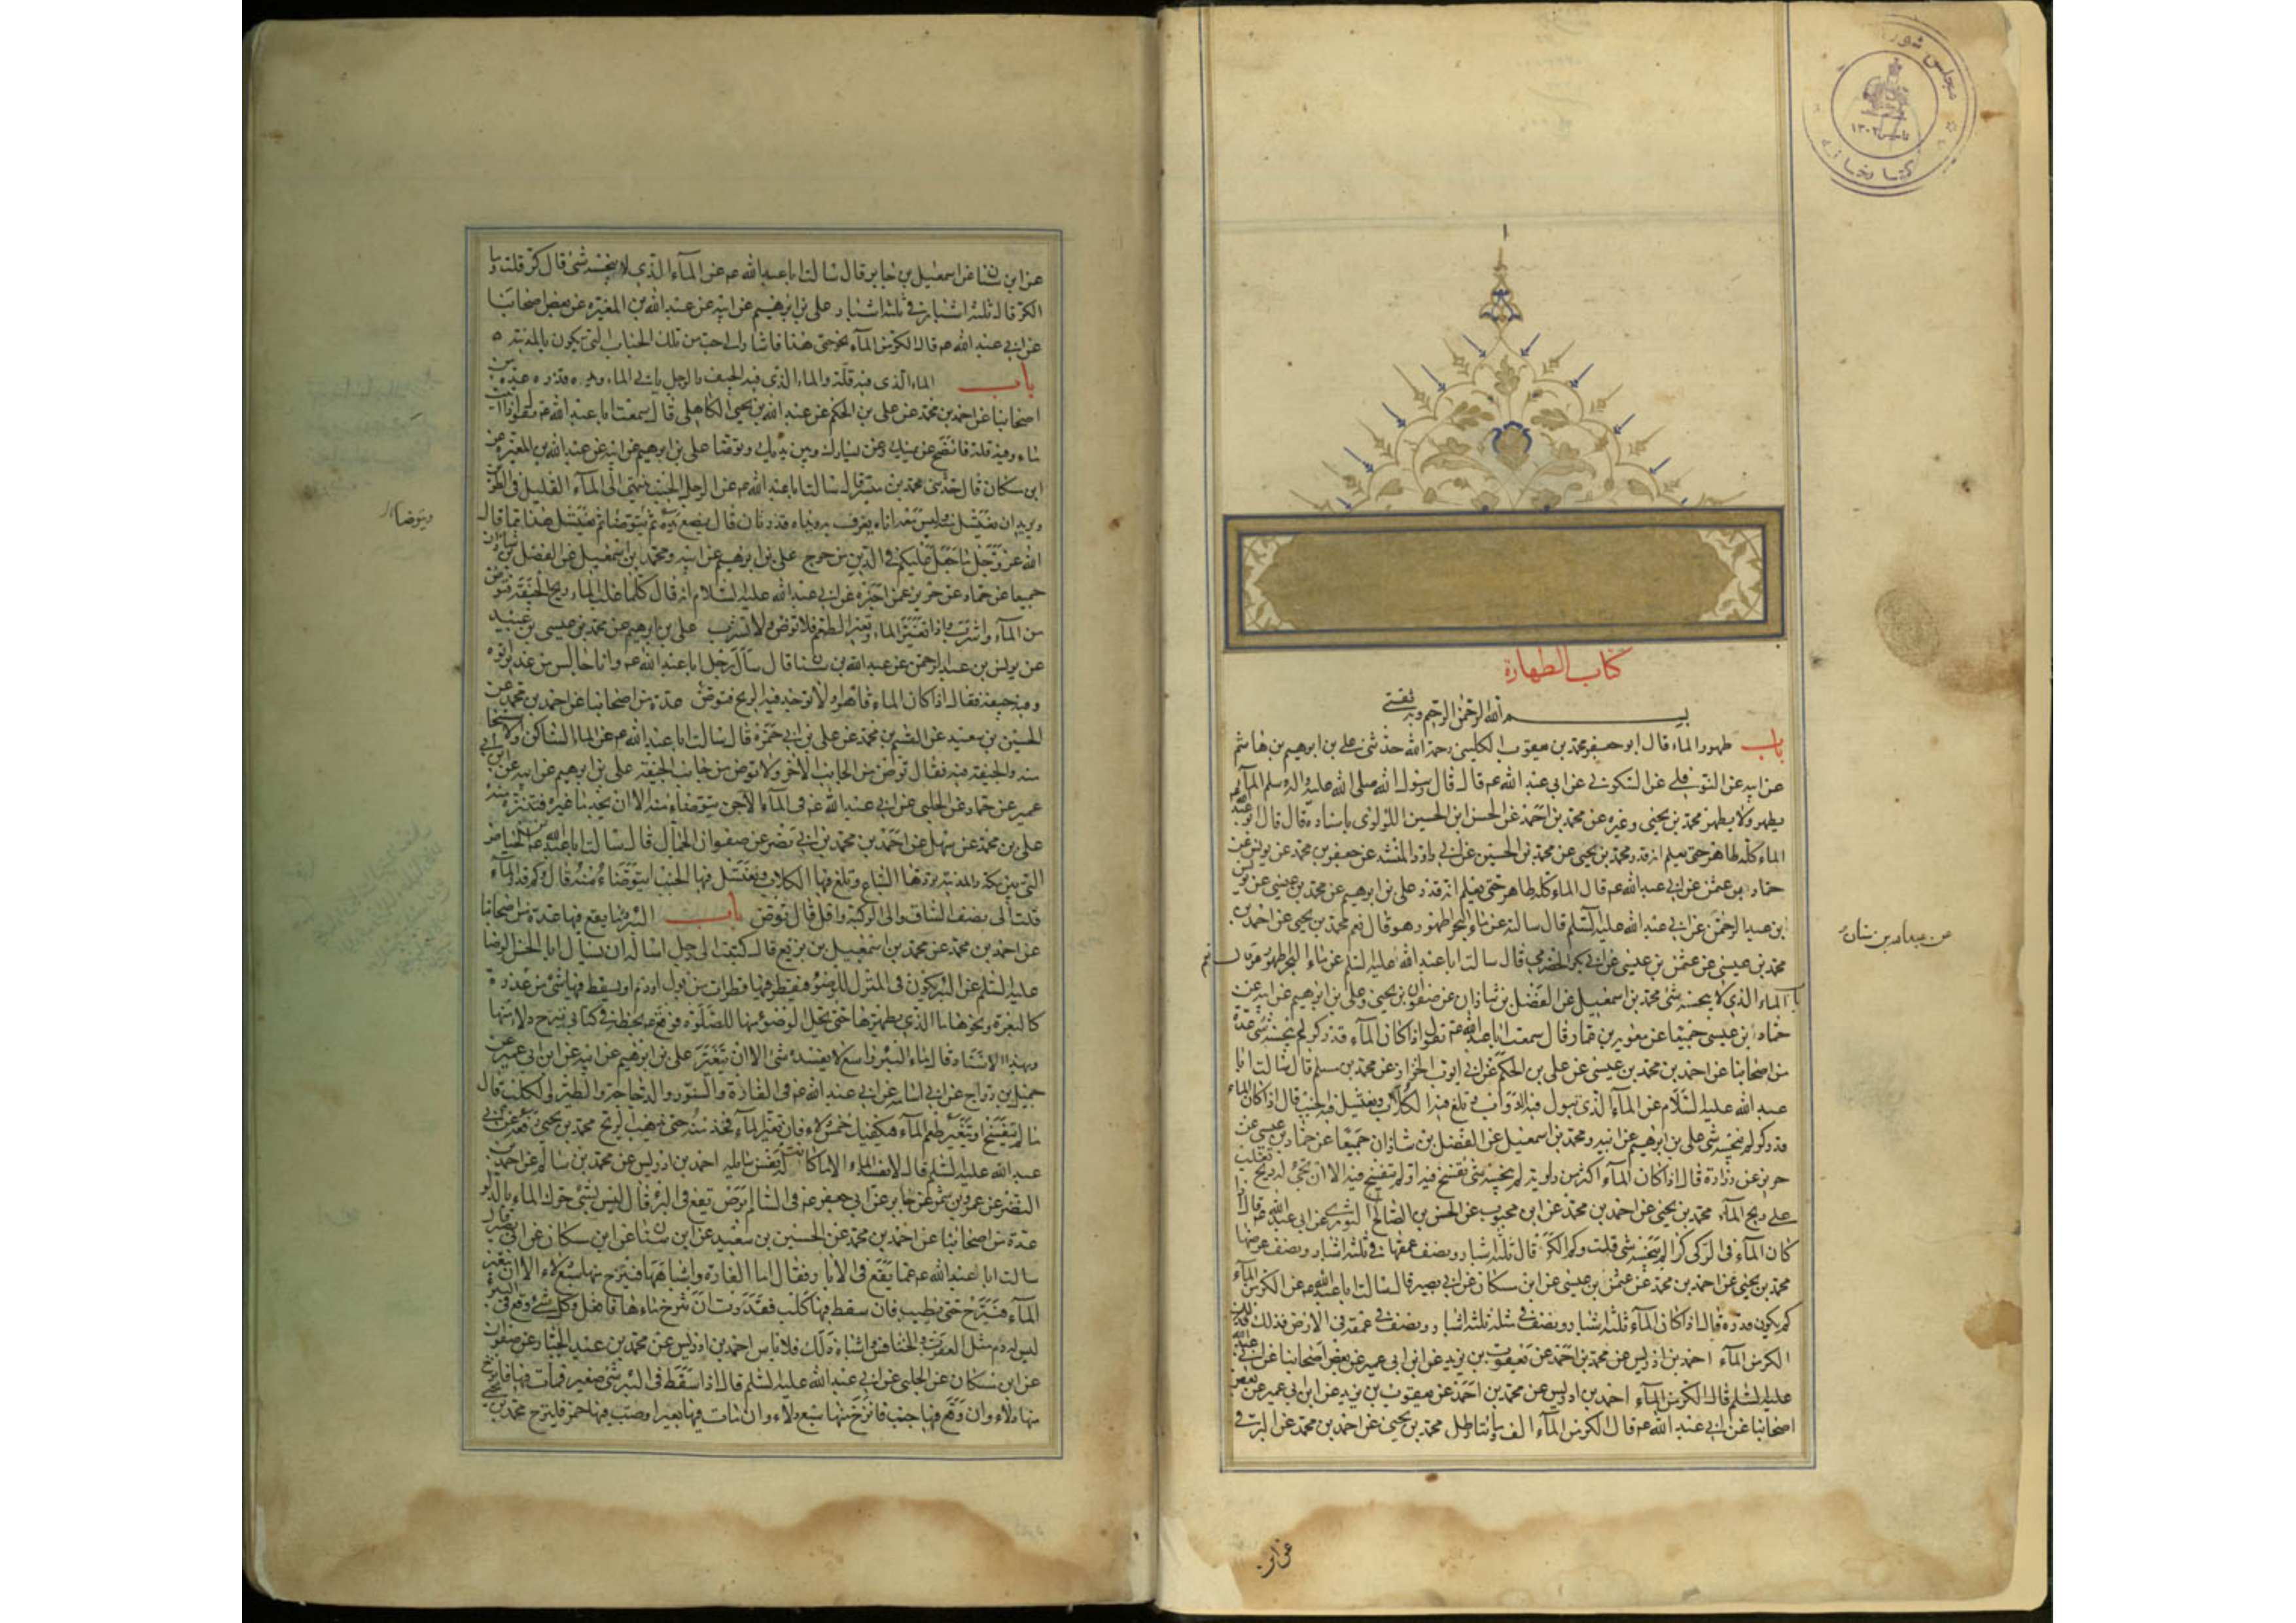 مجلس شورا
تاسیس ۱۳۰۲
کتابخانه
کتاب الطهارة
بسم الله الرحمن الرحیم وبه ثقتی
باب طهور الماء قال ابو جعفر محمد بن یعقوب الکلینی رحمه الله حدثنی علی بن ابرهیم بن هاشم
عن ابیه عن النوفلی عن السکونی عن ابی عبد الله عم قال قال رسول الله صلی الله علیه واله وسلم المآء
یطهر ولا یطهر محمد بن یحیی وغیره عن محمد بن احمد عن الحسن ابن الحسین اللؤلؤی باسناده قال قال ابو عبد الله
الماء کله طاهر حتی یعلم انه قذر محمد بن یحیی عن محمد بن الحسین عن ابی داود المنشد عن جعفر بن محمد عن یونس عن
حماد بن عثمن عن ابی عبد الله عم قال الماء کله طاهر حتی یعلم انه قذر علی بن ابرهیم عن محمد بن عیسی عن یونس
بن عبد الرحمن عن ابی عبد الله علیه السلم قال سالته عن ماء البحر اطهور هو قال نعم محمد بن یحیی عن احمد بن
عن عبد الله بن سنان
محمد بن عیسی عن عثمن بن عیسی عن ابی بکر الحضرمی قال سالت ابا عبد الله علیه السلم عن ماء البحر اطهور هو قال نعم
باب الماء الذی لا ینجسه شی محمد بن اسمعیل عن الفضل بن شاذان عن صفوان بن یحیی وعلی بن ابرهیم عن ابیه عن
حماد بن عیسی جمیعا عن معویة بن عمار قال سمعت ابا عبد الله عم یقول اذا کان المآء قدر کر لم ینجسه شی عدة
من اصحابنا عن احمد بن محمد بن عیسی عن علی بن الحکم عن ابی ایوب الخزاز عن محمد بن مسلم قال سالت ابا
عبد الله علیه السلام عن المآء الذی تبول فیه الدواب وتلغ فیه الکلاب ویغتسل فیه الجنب قال اذا کان الماء
قدر کر لم ینجسه شی علی بن ابرهیم عن ابیه ومحمد بن اسمعیل عن الفضل بن شاذان جمیعا عن حماد بن عیسی عن
حریز عن زرارة قال اذا کان المآء اکثر من راویة لم ینجسه شی تفسخ فیه او لم یتفسخ فیه الا ان یجیء له ریح تغلب
علی ریح المآء محمد بن یحیی عن احمد بن محمد عن ابن محبوب عن الحسن بن الصالح الثوری عن ابی عبد الله عم قال اذا
کان المآء فی الرکی کرا لم ینجسه شی قلت وکم الکر قال ثلثة اشبار ونصف عمقها فی ثلثة اشبار ونصف عرضها
محمد بن یحیی عن احمد بن محمد عن عثمن بن عیسی عن ابن مسکان عن ابی بصیر قال سالت ابا عبد الله عم عن الکر من المآء
کم یکون قدره قال اذا کان المآء ثلثة اشبار ونصف فی مثله ثلثة اشبار ونصف فی عمقه فی الارض فذلک
الکر من المآء احمد بن ادریس عن محمد بن احمد عن یعقوب بن یزید عن ابن ابی عمیر عن بعض اصحابنا عن ابی عبد الله
علیه السلم قال الکر من المآء احمد بن ادریس عن محمد بن احمد عن یعقوب بن یزید عن ابن ابی عمیر عن بعض
اصحابنا عن ابی عبد الله عم قال الکر من المآء الف ومائتا رطل محمد بن یحیی عن احمد بن محمد عن البرقی
عن ابن
عن ابن سنان عن اسمعیل بن جابر قال سالت ابا عبد الله عم عن المآء الذی لا ینجسه شی قال کر قلت وما
الکر قال ثلثة اشبار فی ثلثة اشبار علی بن ابرهیم عن ابیه عن عبد الله بن المغیره عن بعض اصحابنا
عن ابی عبد الله عم قال الکر من المآء نحو حبی هذا فاشار الی حب من تلک الحباب التی تکون بالمدینه
باب الماء الذی فیه قلة والماء الذی فیه الجیف والرجل یاتی الماء ویده قذره عدة من
اصحابنا عن احمد بن محمد عن علی بن الحکم عن عبد الله بن یحیی الکاهلی قال سمعت ابا عبد الله عم یقول اذا اتیت
ماء وفیه قلة فانضح عن یمینک وعن یسارک وبین یدیک وتوضا علی بن ابرهیم عن ابیه عن عبد الله بن المغیره عن
ابن مسکان قال حدثنی محمد بن میسر قال سالت ابا عبد الله عم عن الرجل الجنب ینتهی الی المآء القلیل فی الطریق
ویرید ان یغتسل منه ولیس معه اناء یغرف به ویداه قذرتان قال یضع یده ثم یتوضا ثم یغتسل هذا مما قال
ویتوضا
الله عز وجل ما جعل علیکم فی الدین من حرج علی بن ابرهیم عن ابیه ومحمد بن اسمعیل عن الفضل بن شاذان
جمیعا عن حماد عن حریز عمن اخبره عن ابی عبد الله علیه السلام انه قال کلما غلب الماء ریح الجیفة فتوض
من المآء واشرب واذا تغیر الماء وتغیر الطعم فلا توض ولا تشرب علی بن ابرهیم عن محمد بن عیسی بن عبید
عن یونس بن عبد الرحمن عن عبد الله بن سنان قال سال رجل ابا عبد الله عم وانا جالس عن غدیر اتوه
وفیه جیفة فقال اذا کان الماء قاهرا ولا توجد فیه الریح فتوض عدة من اصحابنا عن احمد بن محمد عن
الحسین بن سعید عن القسم بن محمد عن علی بن ابی حمزة قال سالت ابا عبد الله عم عن الماء الساکن والاستنجا
منه والجیفة فیه فقال توض من الجانب الاخر ولا توض من جانب الجیفة علی بن ابرهیم عن ابیه عن ابن ابی
عمیر عن حماد عن الحلبی عن ابی عبد الله عم فی المآء الآجن یتوضاء منه الا ان یجد ماء غیره فتنزه منه
علی بن محمد عن سهل عن احمد بن محمد بن ابی نصر عن صفوان الجمال قال سالت ابا عبد الله عم عن الحیاض
التی بین مکة والمدینة تردها السباع وتلغ فیها الکلاب ویغتسل فیها الجنب ایتوضاء منه قال وکم قدر المآء
قلت الی نصف الساق والی الرکبة واقل قال توض باب البئر وما یقع فیها عدة من اصحابنا
عن احمد بن محمد عن محمد بن اسمعیل بن بزیع قال کتبت الی رجل اساله ان یسال ابا الحسن الرضا
علیه السلم عن البئر یکون فی المنزل للوضوء فیقطر فیها قطرات من بول او دم او یسقط فیها شی من عذرة
کالبعرة ونحوها ما الذی یطهرها حتی یحل الوضوء منها للصلوة فوقع عم بخطه فی کتابی ینزح دلاء منها
وبهذا الاسناد قال ماء البئر واسع لا یفسده شی الا ان یتغیر علی بن ابرهیم عن ابیه عن ابن ابی عمیر عن
جمیل بن دراج عن ابی اسامه عن ابی عبد الله عم فی الفارة والسنور والدجاجة والطیر والکلب قال
ما لم یتفسخ او یتغیر طعم المآء فیکفیک خمس دلاء فان تغیر المآء فخذ منه حتی یذهب الریح محمد بن یحیی رفعه عن ابی
عبد الله علیه السلم قال لا یفسد الماء الا ما کانت له نفس سایله احمد بن ادریس عن محمد بن سالم عن احمد بن
النضر عن عمرو بن شمر عن جابر عن ابی جعفر عم فی السام ابرص یقع فی البئر قال لیس بشی حرک الماء بالدلو
عدة من اصحابنا عن احمد بن محمد عن الحسین بن سعید عن ابن سنان عن ابن مسکان عن ابی بصیر قال
سالت ابا عبد الله عم عما یقع فی الابار فقال اما الفارة واشباهها فینزح منها سبع دلاء الا ان یتغیر
المآء فینزح حتی یطیب فان سقط فیها کلب فقدرت ان تنزح ماءها فافعل وکل شی وقع فی البئر
لیس له دم مثل العقرب والخنافس واشباه ذلک فلا باس احمد بن ادریس عن محمد بن عبد الجبار عن صفوان
عن ابن مسکان عن الحلبی عن ابی عبد الله علیه السلم قال اذا سقط فی البئر شی صغیر فمات فیها فانزح
منها دلاء وان وقع فیها جنب فانزح منها سبع دلاء وان مات فیها بعیر او صب فیها خمر فلینزح محمد بن یحیی